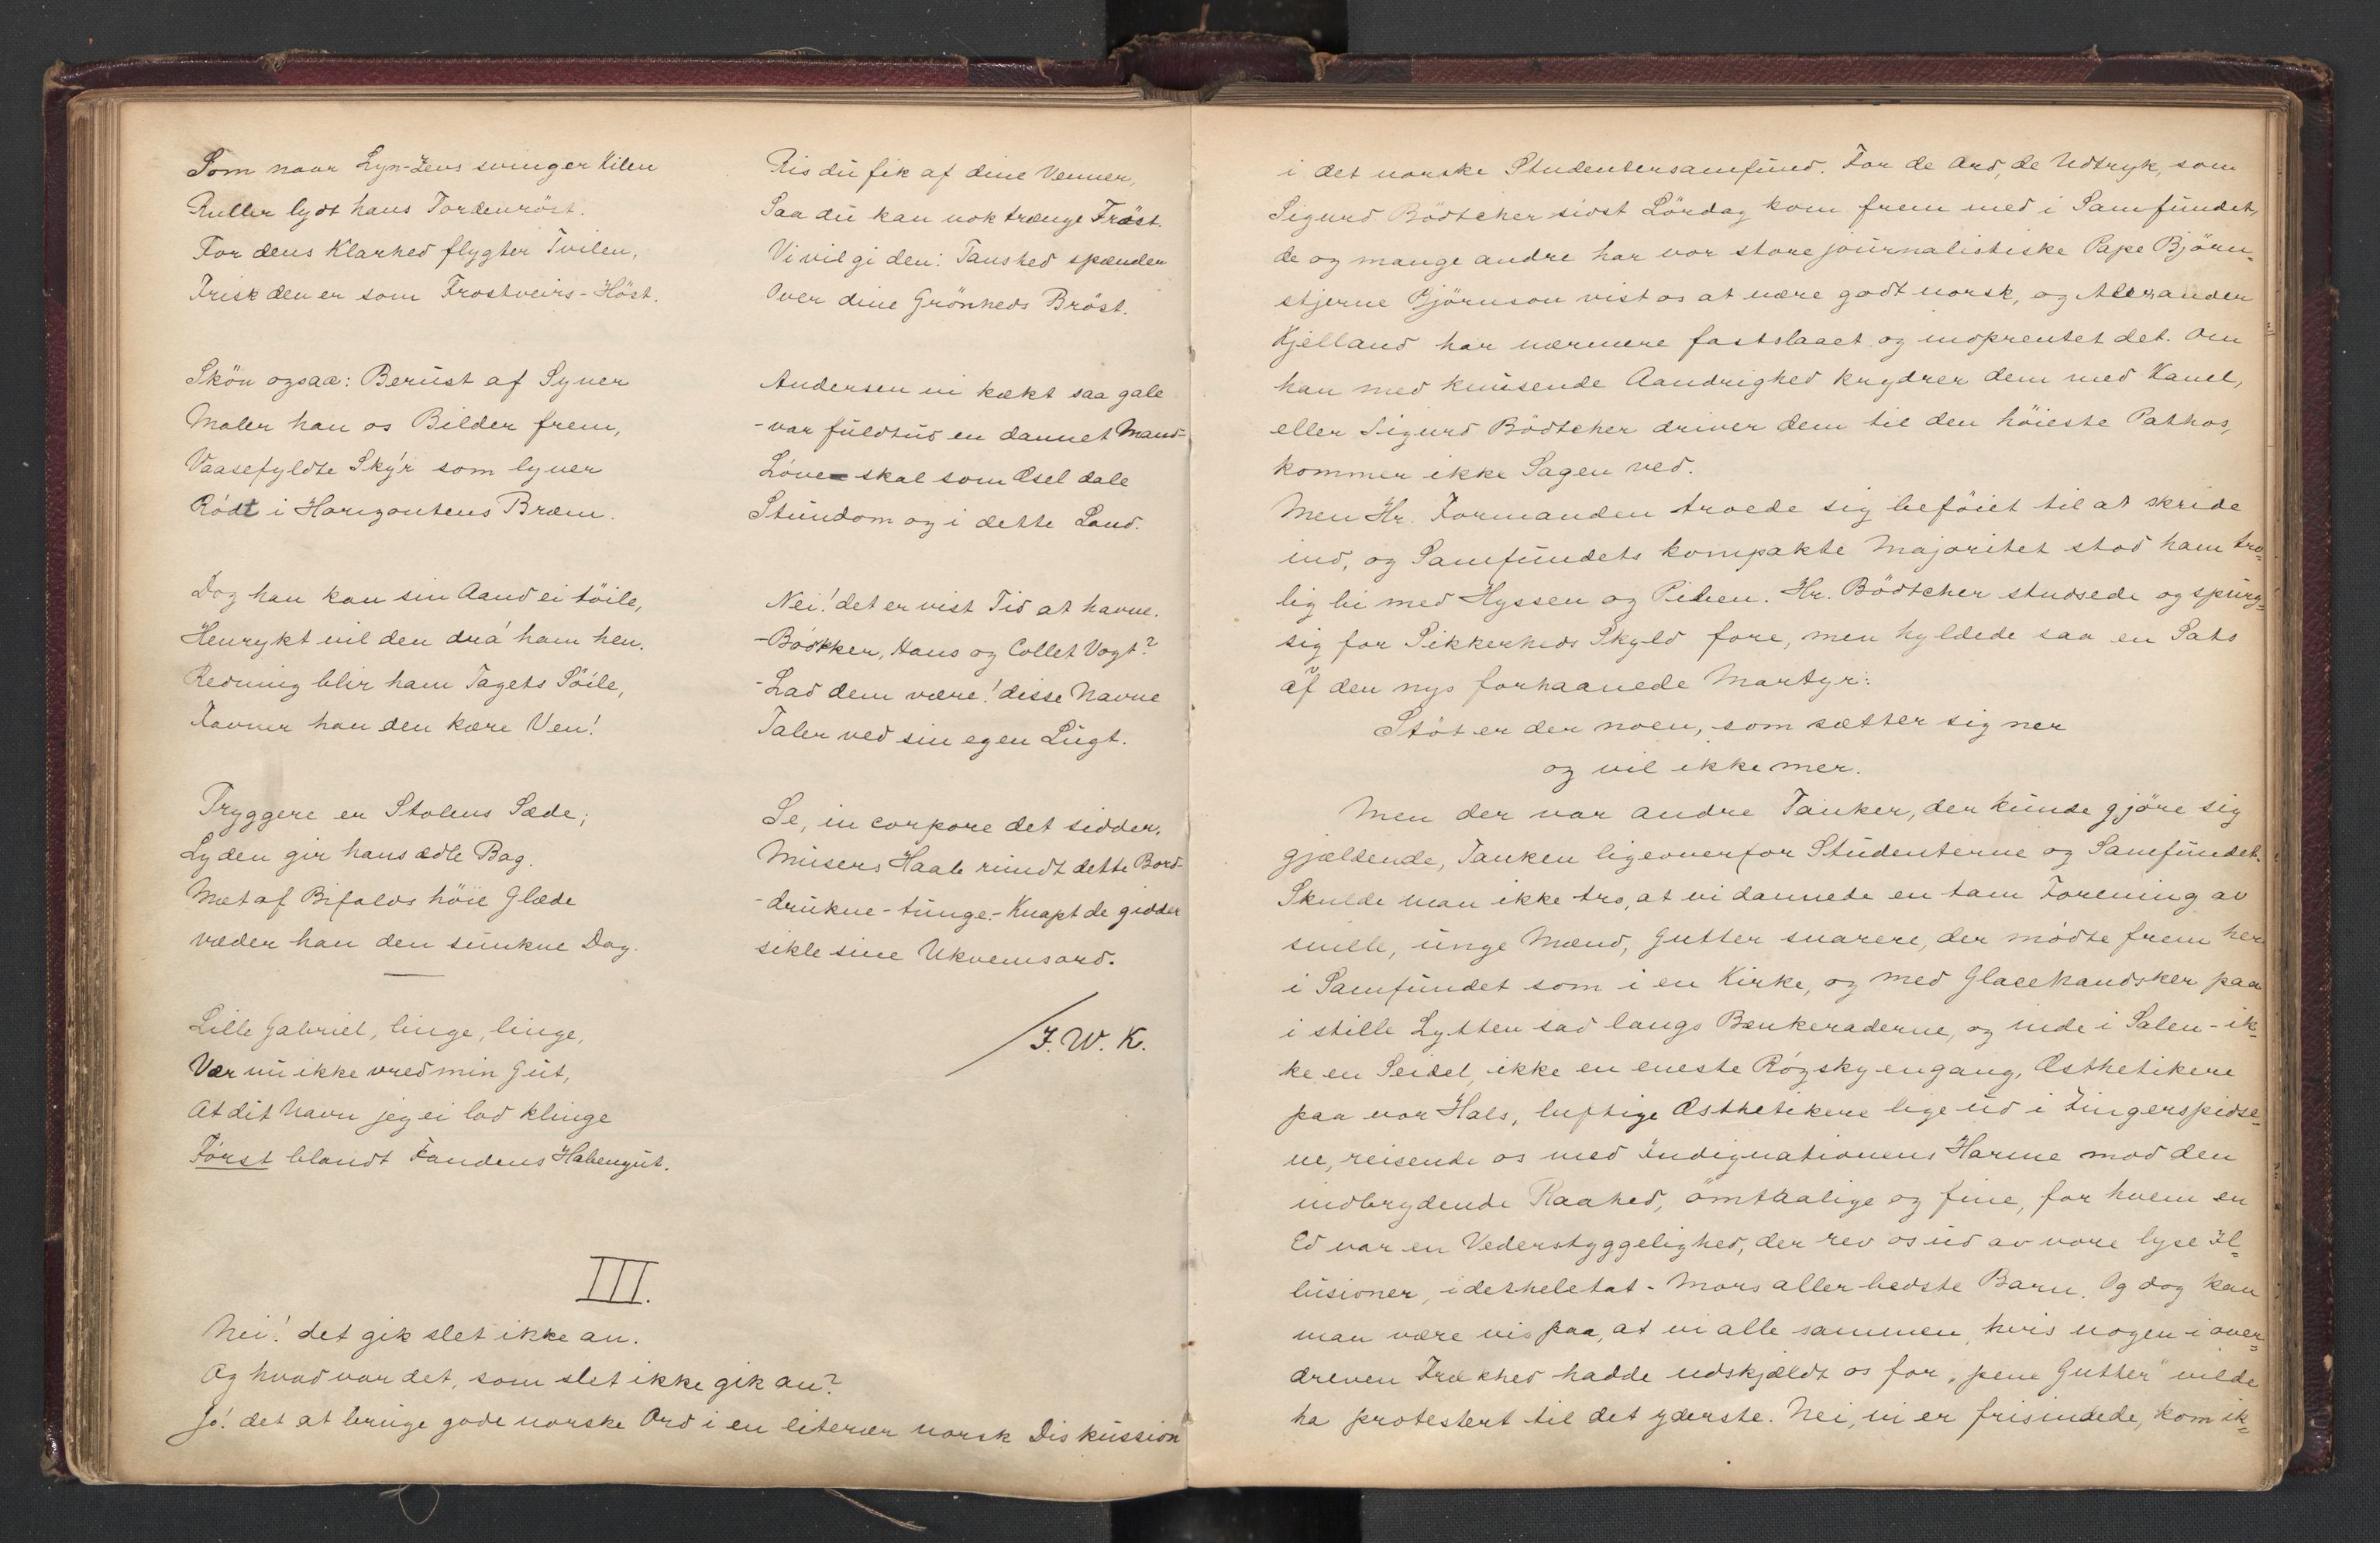 Som naar Lyn-Zeus svinger Kilen
Ruller lydt hans Tordenröst.
For dens Klarhed flygter Tvilen,
Frisk den er som Frostveirs-Höst.
Skön ogsaa: Berust af Syner
Maler han os Bilder frem,
Vaasefyldte Skyr som lyner
Rödt i Horizontens Bræm.
Dog han kan sin Aand ei töile,
Henrykt vil den dra ham hen.
Redning blir ham Tagets Söile,
Favner han den kære Ven!
Tryggere er Stolens Sæde;
Lyden gir hans ædle Bag.
Mæt af Bifalds höie Glæde
væder han den sunkne Dag.
Lille Gabriel, linge, linge,
Vær nu ikke vred min Gut,
At dit Navn jeg ei lod klinge
Först blandt Fandens Habengut.
Ris du fik af dine Venner,
Saa du kan nok trænge Tröst.
Vi vil gi den: Taushed spænder
Over dine Grönheds Bröst.
Andersen vi kækt saa gale
-var fuldtud en dannet Mand-
Löve skal som Æsel dale
Stundom og i dette Land.
Nei! det er vist Tid at havne.
-Bödtker, Hans og Collet Vogt?
-Lad dem være! disse Navne
Taler ved sin egen Lugt.
Se, in corpore det sidder,
Musers Haab rundt dette Bord-
-drukne-tunge.-Knapt de gidder
sikle sine Ukvemsord.
J. W. K.
III.
Nei! det gik slet ikke an.
Og hvad var det, som slet ikke gik an?
Jo! det at bruge gode norske Ord i en literær norsk Diskussion
i det norske Studentersamfund. For de Ord, de Udtryk, som
Sigurd Bödtcher sidst Lördag kom frem med i Samfundet,
de og mange andre har vor store journalistiske Pape Björn-
stjerne Björnson vist os at være godt norsk, og Alexander
Kjelland har nærmere fastslaaet og indprentet det. Om
han med knusende Aandrighed krydrer dem med Kanel,
eller Sigurd Bödtcher driver dem til den höieste Pathos,
kommer ikke Sagen ved.
Men Hr. Formanden troede sig beföiet til at skride
ind, og Samfundets kompakte Majoritet stod ham tro-
lig bi med Hyssen og Piben. Hr. Bödtcher studsede og spurg-
sig for Sikkerheds Skyld fore, men hyldede saa en Sats
af den nys forhaanede Martyr:
Stöt er der noen, som sætter sig ner
og vil ikke mer.
Men der var andre Tanker, der kunde gjöre sig
gjældende, Tanken ligeoverfor Studenterne og Samfundet.
Skulde man ikke tro, at vi dannede en tam Forening av
snille, unge Mænd, Gutter snarere, der mödte frem her
i Samfundet som i en Kirke, og med Glacehandsker paa
i stille Lytten sad langs Bænkeraderne, og inde i Salen - ik-
ke en Seidel, ikke en eneste Rögsky engang, Æsthetikere
paa vor Hals, luftige Æsthetikere lige ud i Fingerspidse-
ne, reisende os med Indignationens Harme mod den
indbrydende Raahed, ömtaalige og fine, for hvem en
Ed var en Vederstyggelighed, der rev os ud av vore lyse Il-
lusioner, idetheletat - Mors allerbedste Barn. Og dog kan
man være vis paa, at vi alle sammen, hvis nogen i over-
dreven Frækhed hadde udskjældt os for "pene Gutter" vilde
ha protestert til det yderste. Nei, vi er frisindede, kom ik-